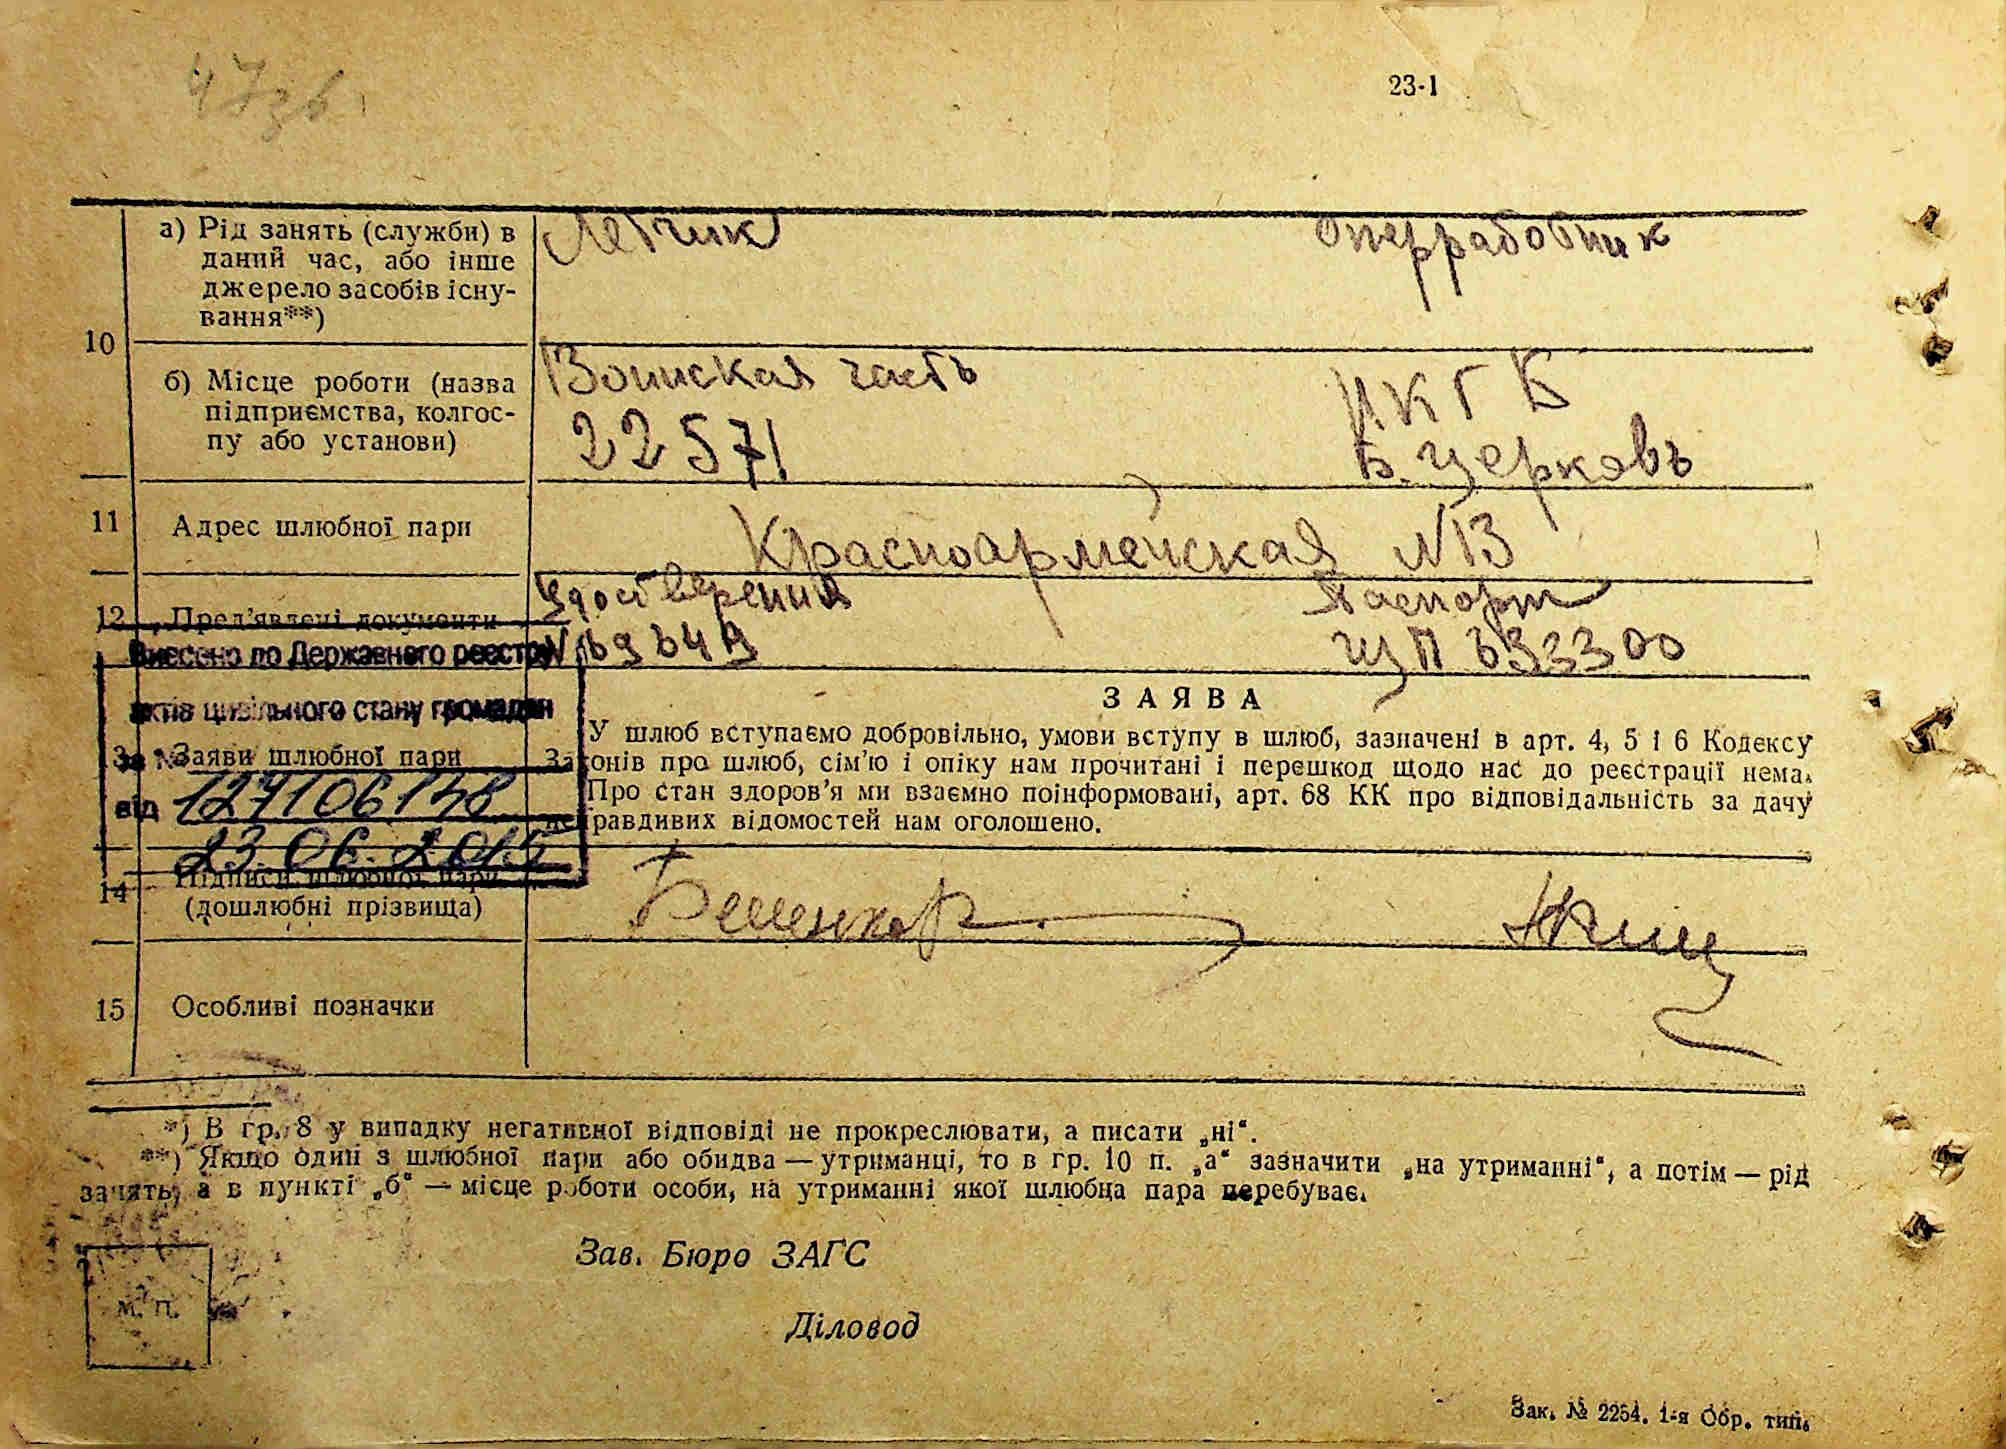 47зв.
23-1
а) Рід занять (служби) в
даний час, або інше
джерело засобів існу-
вання**)
Летчик
Оперработник
10
б) Місце роботи (назва
підприємства, колгос-
пу або установи)
Воинская часть
22571
НКГБ
Б. Церковь
11
Адрес шлюбної пари
Красноармейская №13
12
Пред'явлені документи
Удостверения
Паспорт
633300
Внесено до Державного реєстру
актів цивільного стану громадян
за №
від
23.06.2015
Заяви шлюбної пари
ЗАЯВА
У шлюб вступаємо добровільно, умови вступу в шлюб, зазначені в арт. 4, 5 і 6 Кодексу
Законів про шлюб, сім'ю і опіку нам прочитані і перешкод щодо нас до реєстрації нема.
Про стан здоров'я ми взаємно поінформовані, арт. 68 КК про відповідальність за дачу
неправдивих відомостей нам оголошено.
14
Підписи шлюбної пари
(дошлюбні прізвища)
15
Особливі позначки
*) В гр. 8 у випадку негативної відповіді не прокреслювати, а писати „ні“.
**) Якщо один з шлюбної пари або обидва — утриманці, то в гр. 10 п. „а“ зазначити „на утриманні“, а потім — рід
занять, а в пункті „б“ — місце роботи особи, на утриманні якої шлюбна пара перебуває.
Зав. Бюро ЗАГС
Діловод
М. П.
Зак. № 2254. 1-я Обр. тип.